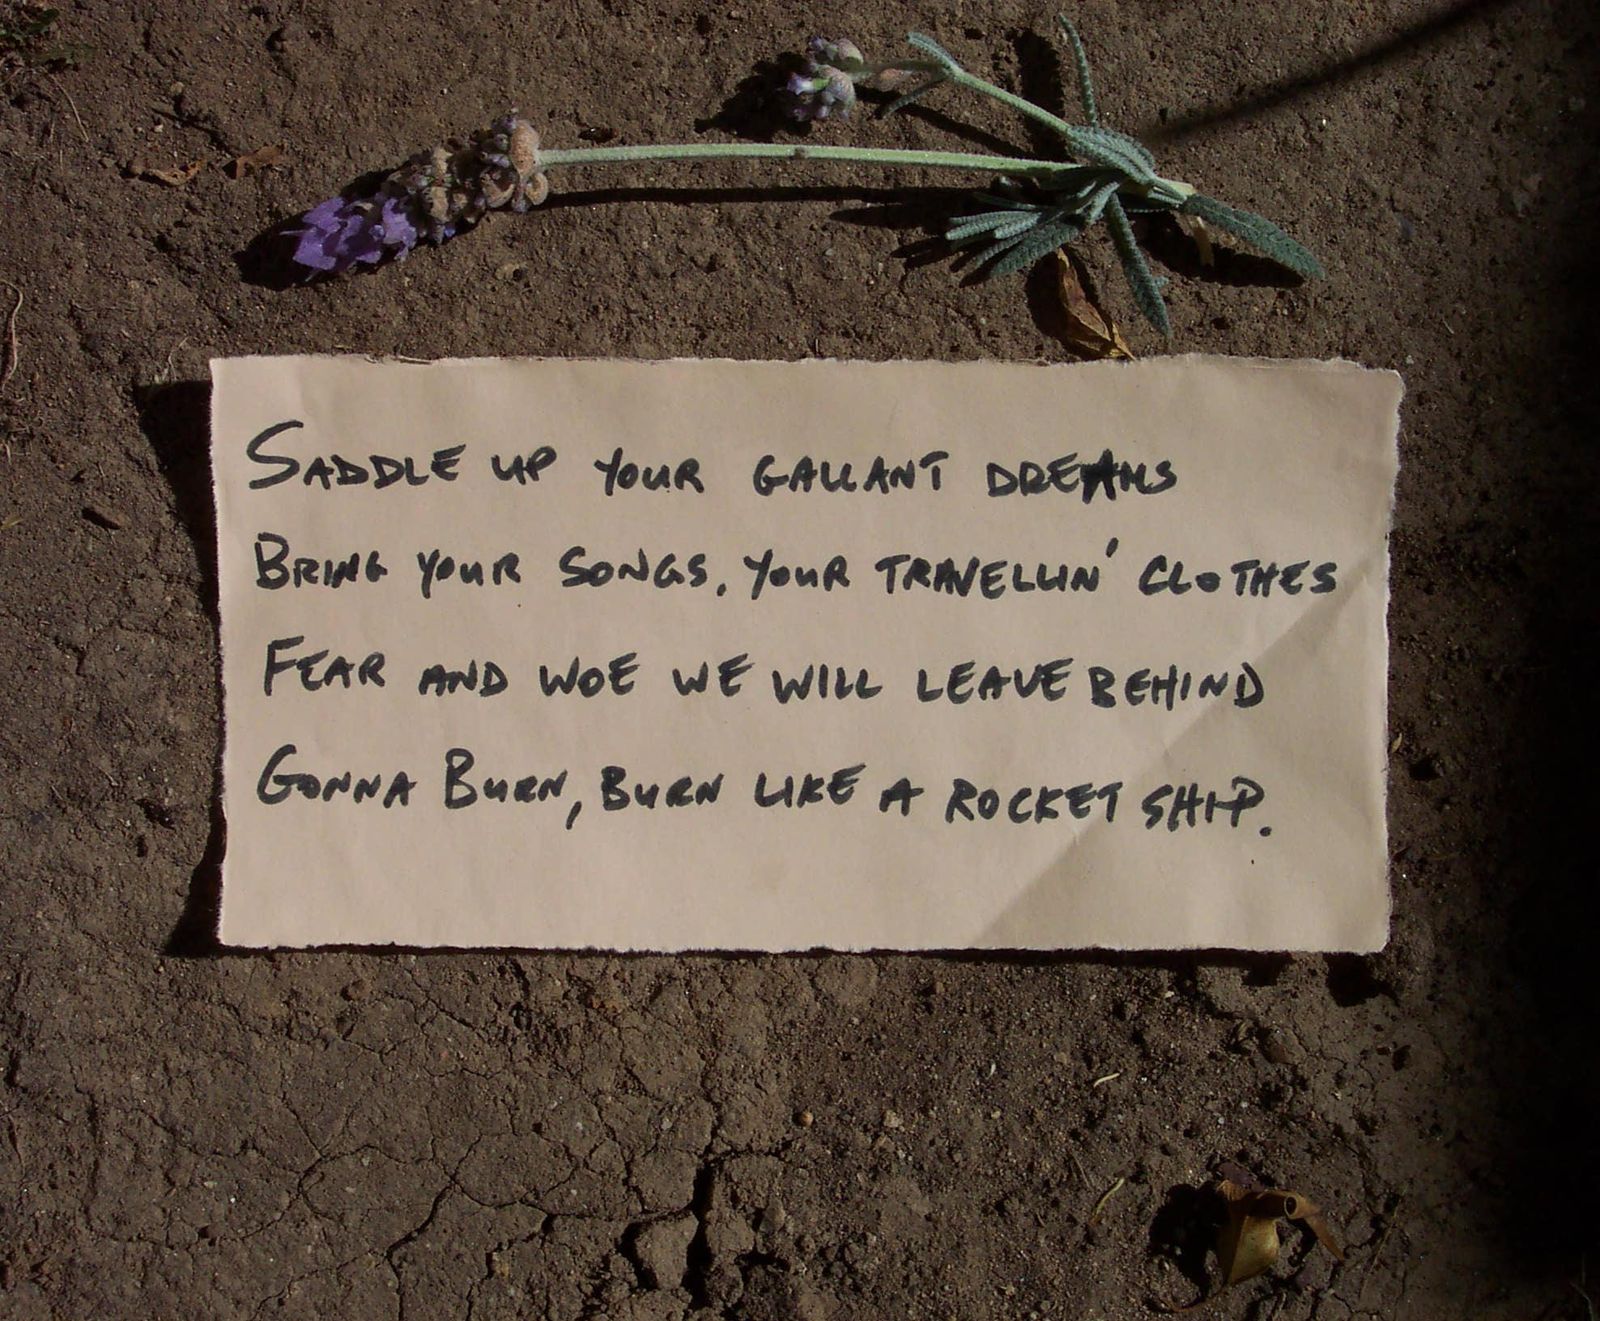 SADDLE UP YOUR GALLANT DREAMS
BRING YOUR SONGS, YOUR TRAVELLIN' CLOTHES
FEAR AND WOE WE WILL LEAVE BEHIND
GONNA BURN, BURN LIKE A ROCKET SHIP.